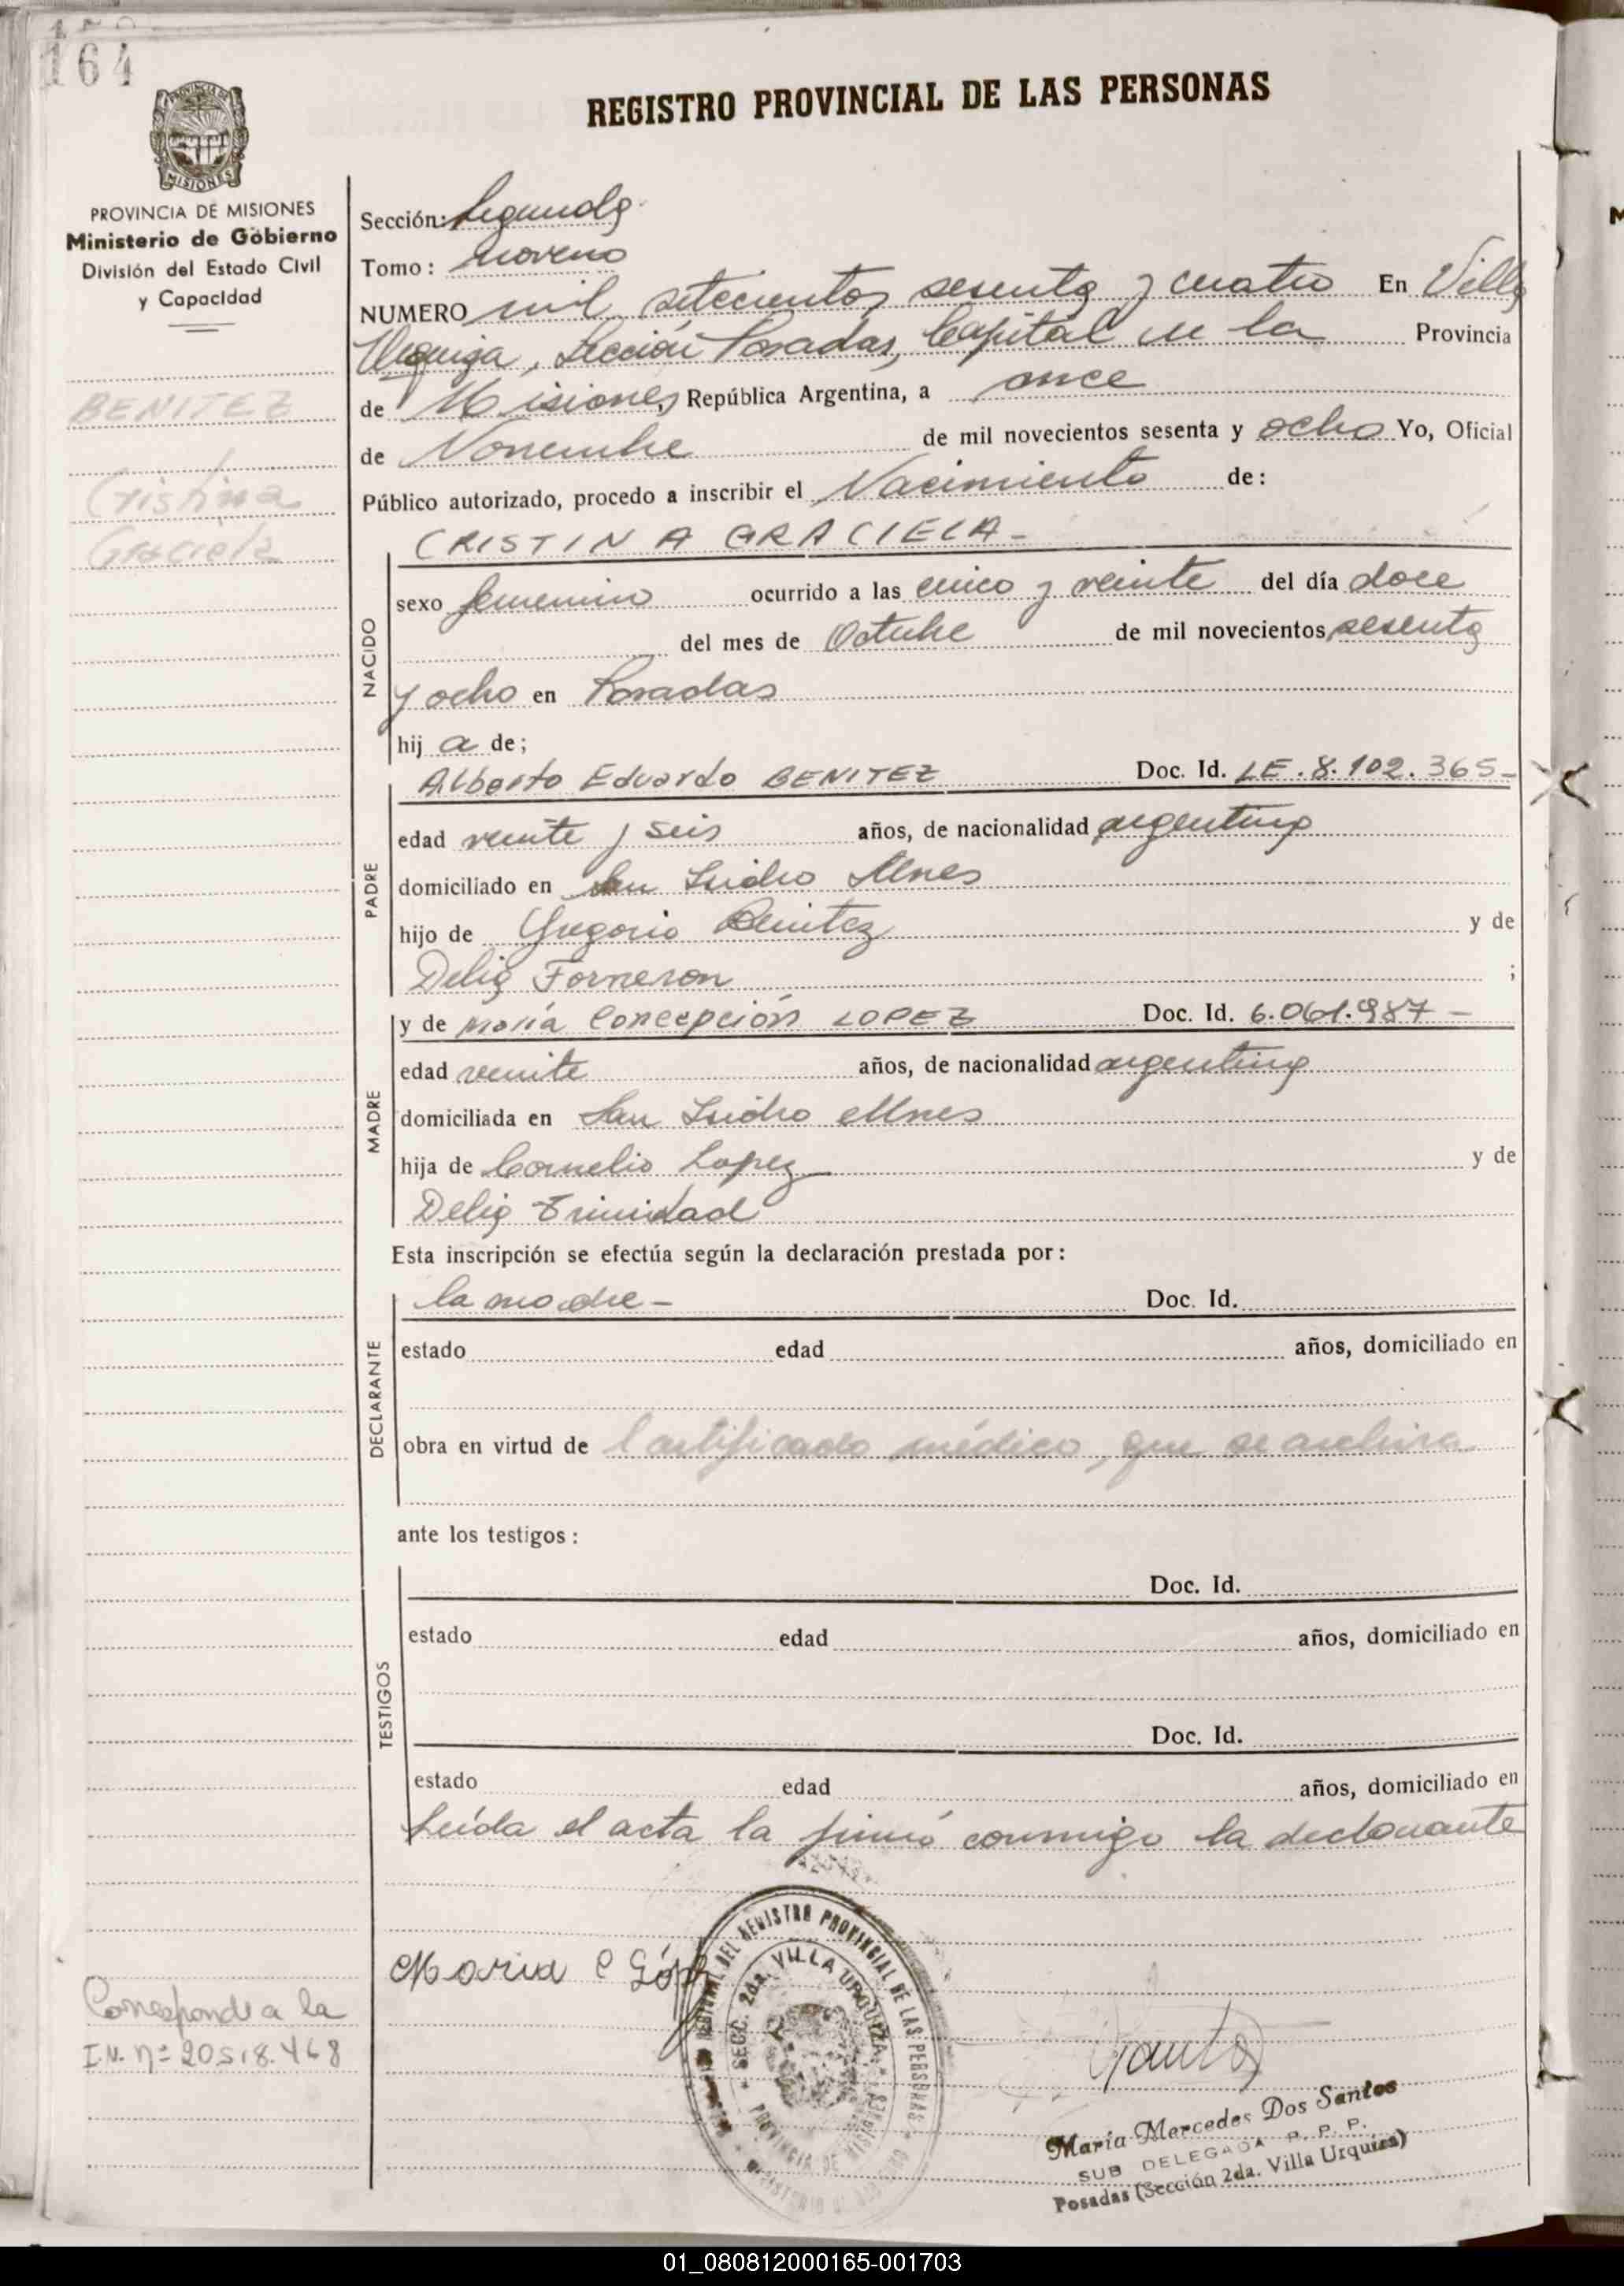 164
REGISTRO PROVINCIAL DE LAS PERSONAS
PROVINCIA DE MISIONES
Ministerio de Gobierno
División del Estado Civil
y Capacidad
BENITEZ
Cristina
Graciela
Sección: Segunda
Tomo: noveno
NUMERO mil setecientos sesenta y cuatro En Villa
Urquiza, Sección Posadas, Capital de la Provincia
de Misiones, República Argentina, a once
de Noviembre de mil novecientos sesenta y ocho Yo, Oficial
Público autorizado, procedo a inscribir el Nacimiento de:
CRISTINA GRACIELA-
NACIDO
sexo femenino ocurrido a las cinco y veinte del día doce
del mes de Octubre de mil novecientos sesenta
y ocho en Posadas
hij a de;
Alberto Eduardo BENITEZ Doc. Id. LE.8.102.365-
PADRE
edad veinte y seis años, de nacionalidad argentino
domiciliado en San Isidro Mnes
hijo de Gregorio Benitez y de
Delia Forneron ;
y de María Concepción LOPEZ Doc. Id. 6.061.987-
MADRE
edad veinte años, de nacionalidad argentina
domiciliada en San Isidro Mnes
hija de Cornelio Lopez y de
Delia Trinidad
Esta inscripción se efectúa según la declaración prestada por:
la madre- Doc. Id.
DECLARANTE
estado edad años, domiciliado en
obra en virtud de Certificado médico, que se archiva
ante los testigos:
Doc. Id.
TESTIGOS
estado edad años, domiciliado en
Doc. Id.
estado edad años, domiciliado en
Leída el acta la firmó conmigo la declarante
Maria C Lópz
DEL REGISTRO PROVINCIAL DE LAS PERSONAS
SECC. 2da. VILLA URQUIZA
PROVINCIA DE MISIONES
Corresponde a la
I.N. nº 20.518.468
María Mercedes Dos Santos
SUB DELEGADA R. P. P.
Posadas (Sección 2da. Villa Urquiza)
01_080812000165-001703